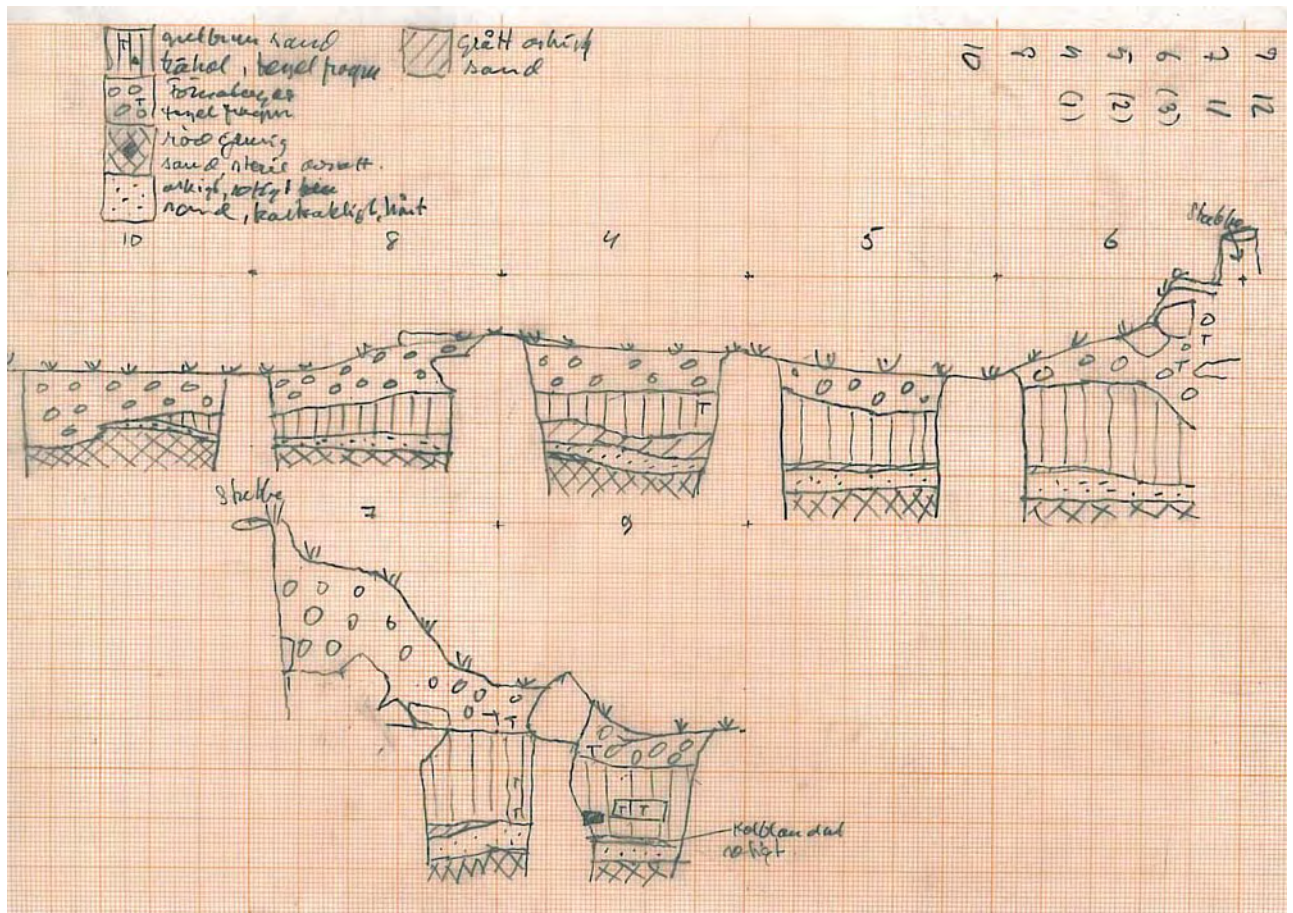 gulbrun sand
träkol, tegel fragm
T
grått askigt
sand
T
tegel fragm
röd grusig
sand, steril avsatt.
askigt, sotigt ben
sand, kalkaktigt, hårt
2 7 6 5 4 9 10
12 11 (3) (2) (1)
10 8 4 5 6
Stubbe
T
T
T
Stubbe
7 9
T T
T
T
T
T T
Kolblandad
sotigt